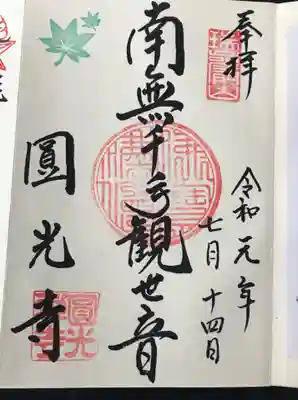 奉拝
令和元年
七月十四日
南無千手観世音
圓光寺
圓光